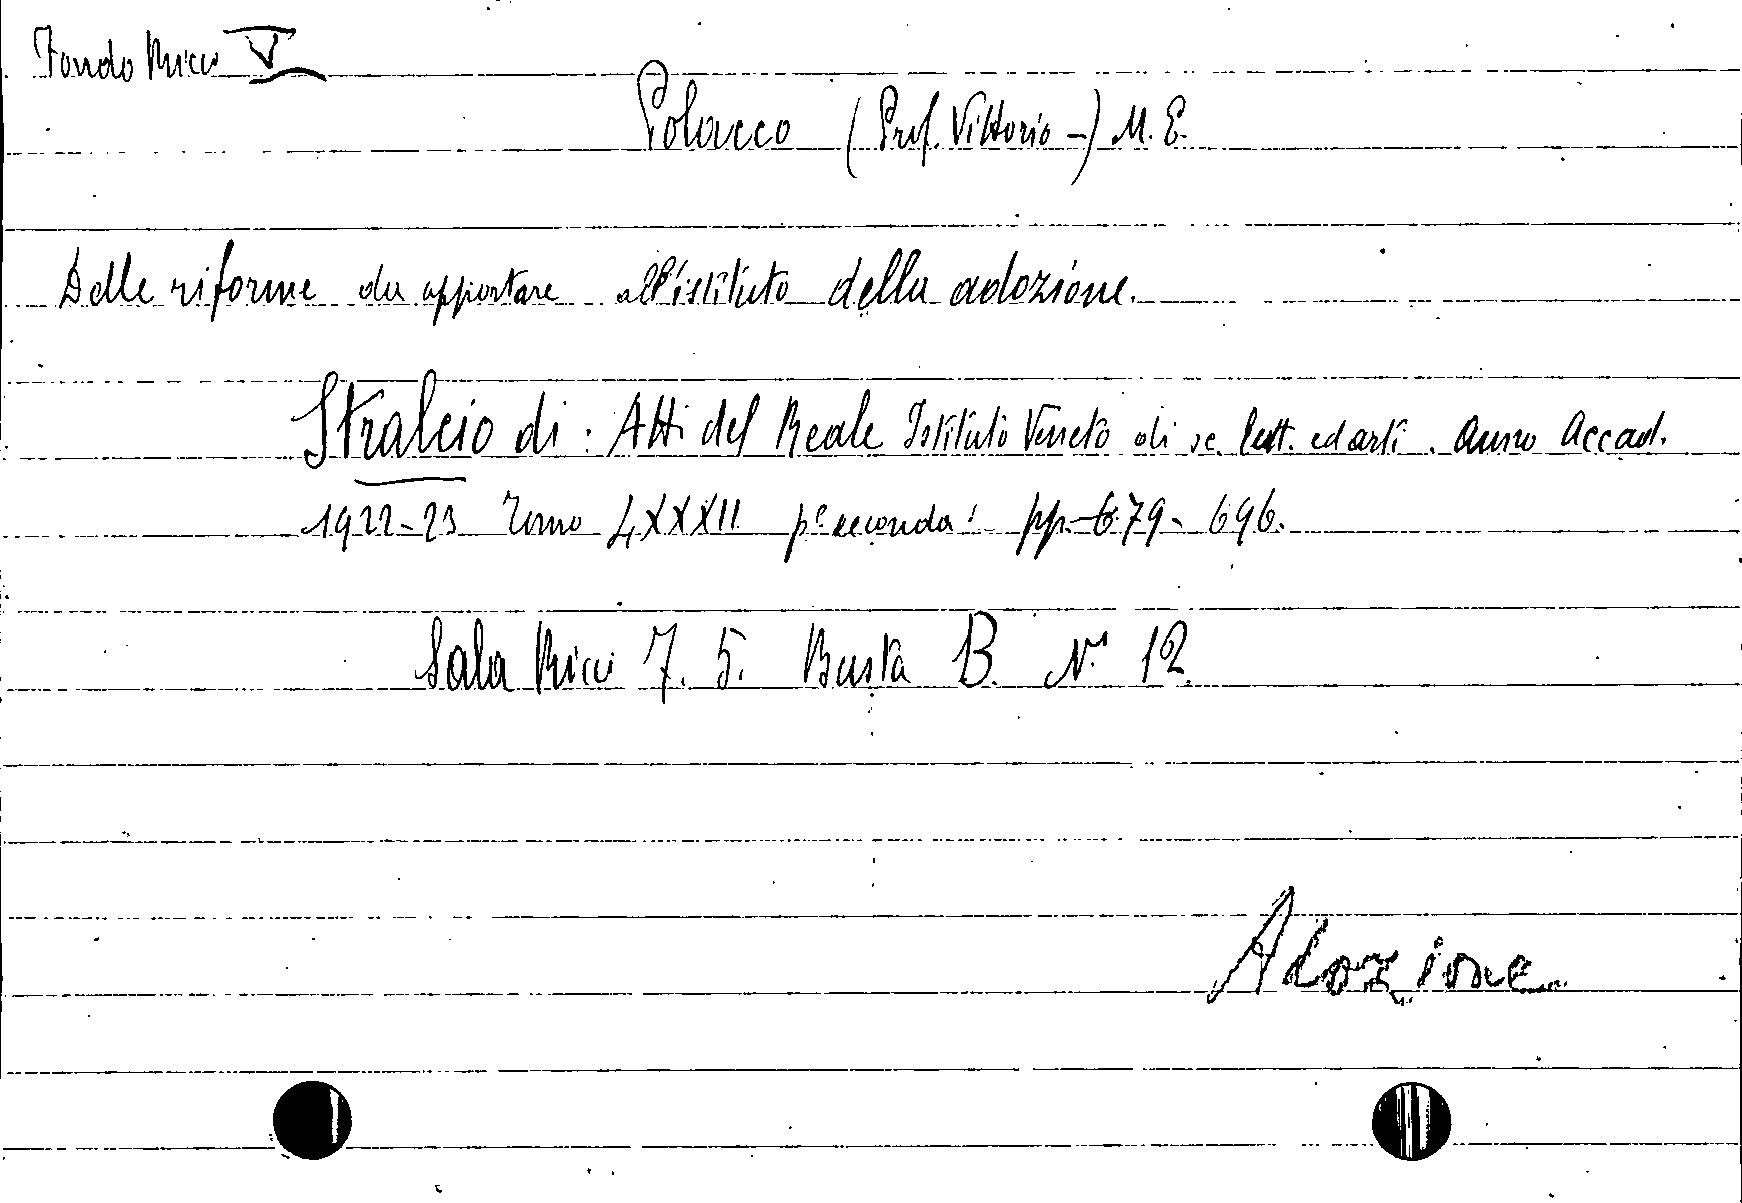 Fondo Ricci V
Polacco (Prof. Vittorio -) M. E.
Delle riforme da apportare all'istituto della adozione.
Stralcio di: Atti del Reale Istituto Veneto di sc. lett. ed arti. Anno Accad.
1922-23 Tomo LXXXII pᵉ seconda: pp. 679-696.
Sala Ricci 7. 5. Busta B. N. 12.
Adozione